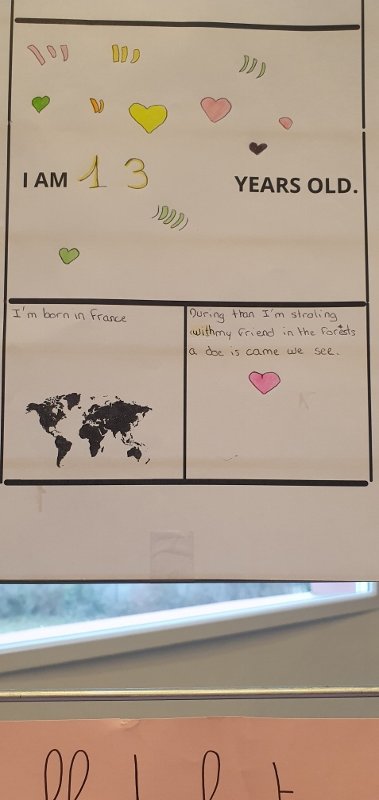 I AM 13 YEARS OLD.
I'm born in France
During than I'm stroling
with my friend in the Forêsts
a doe is came we see.